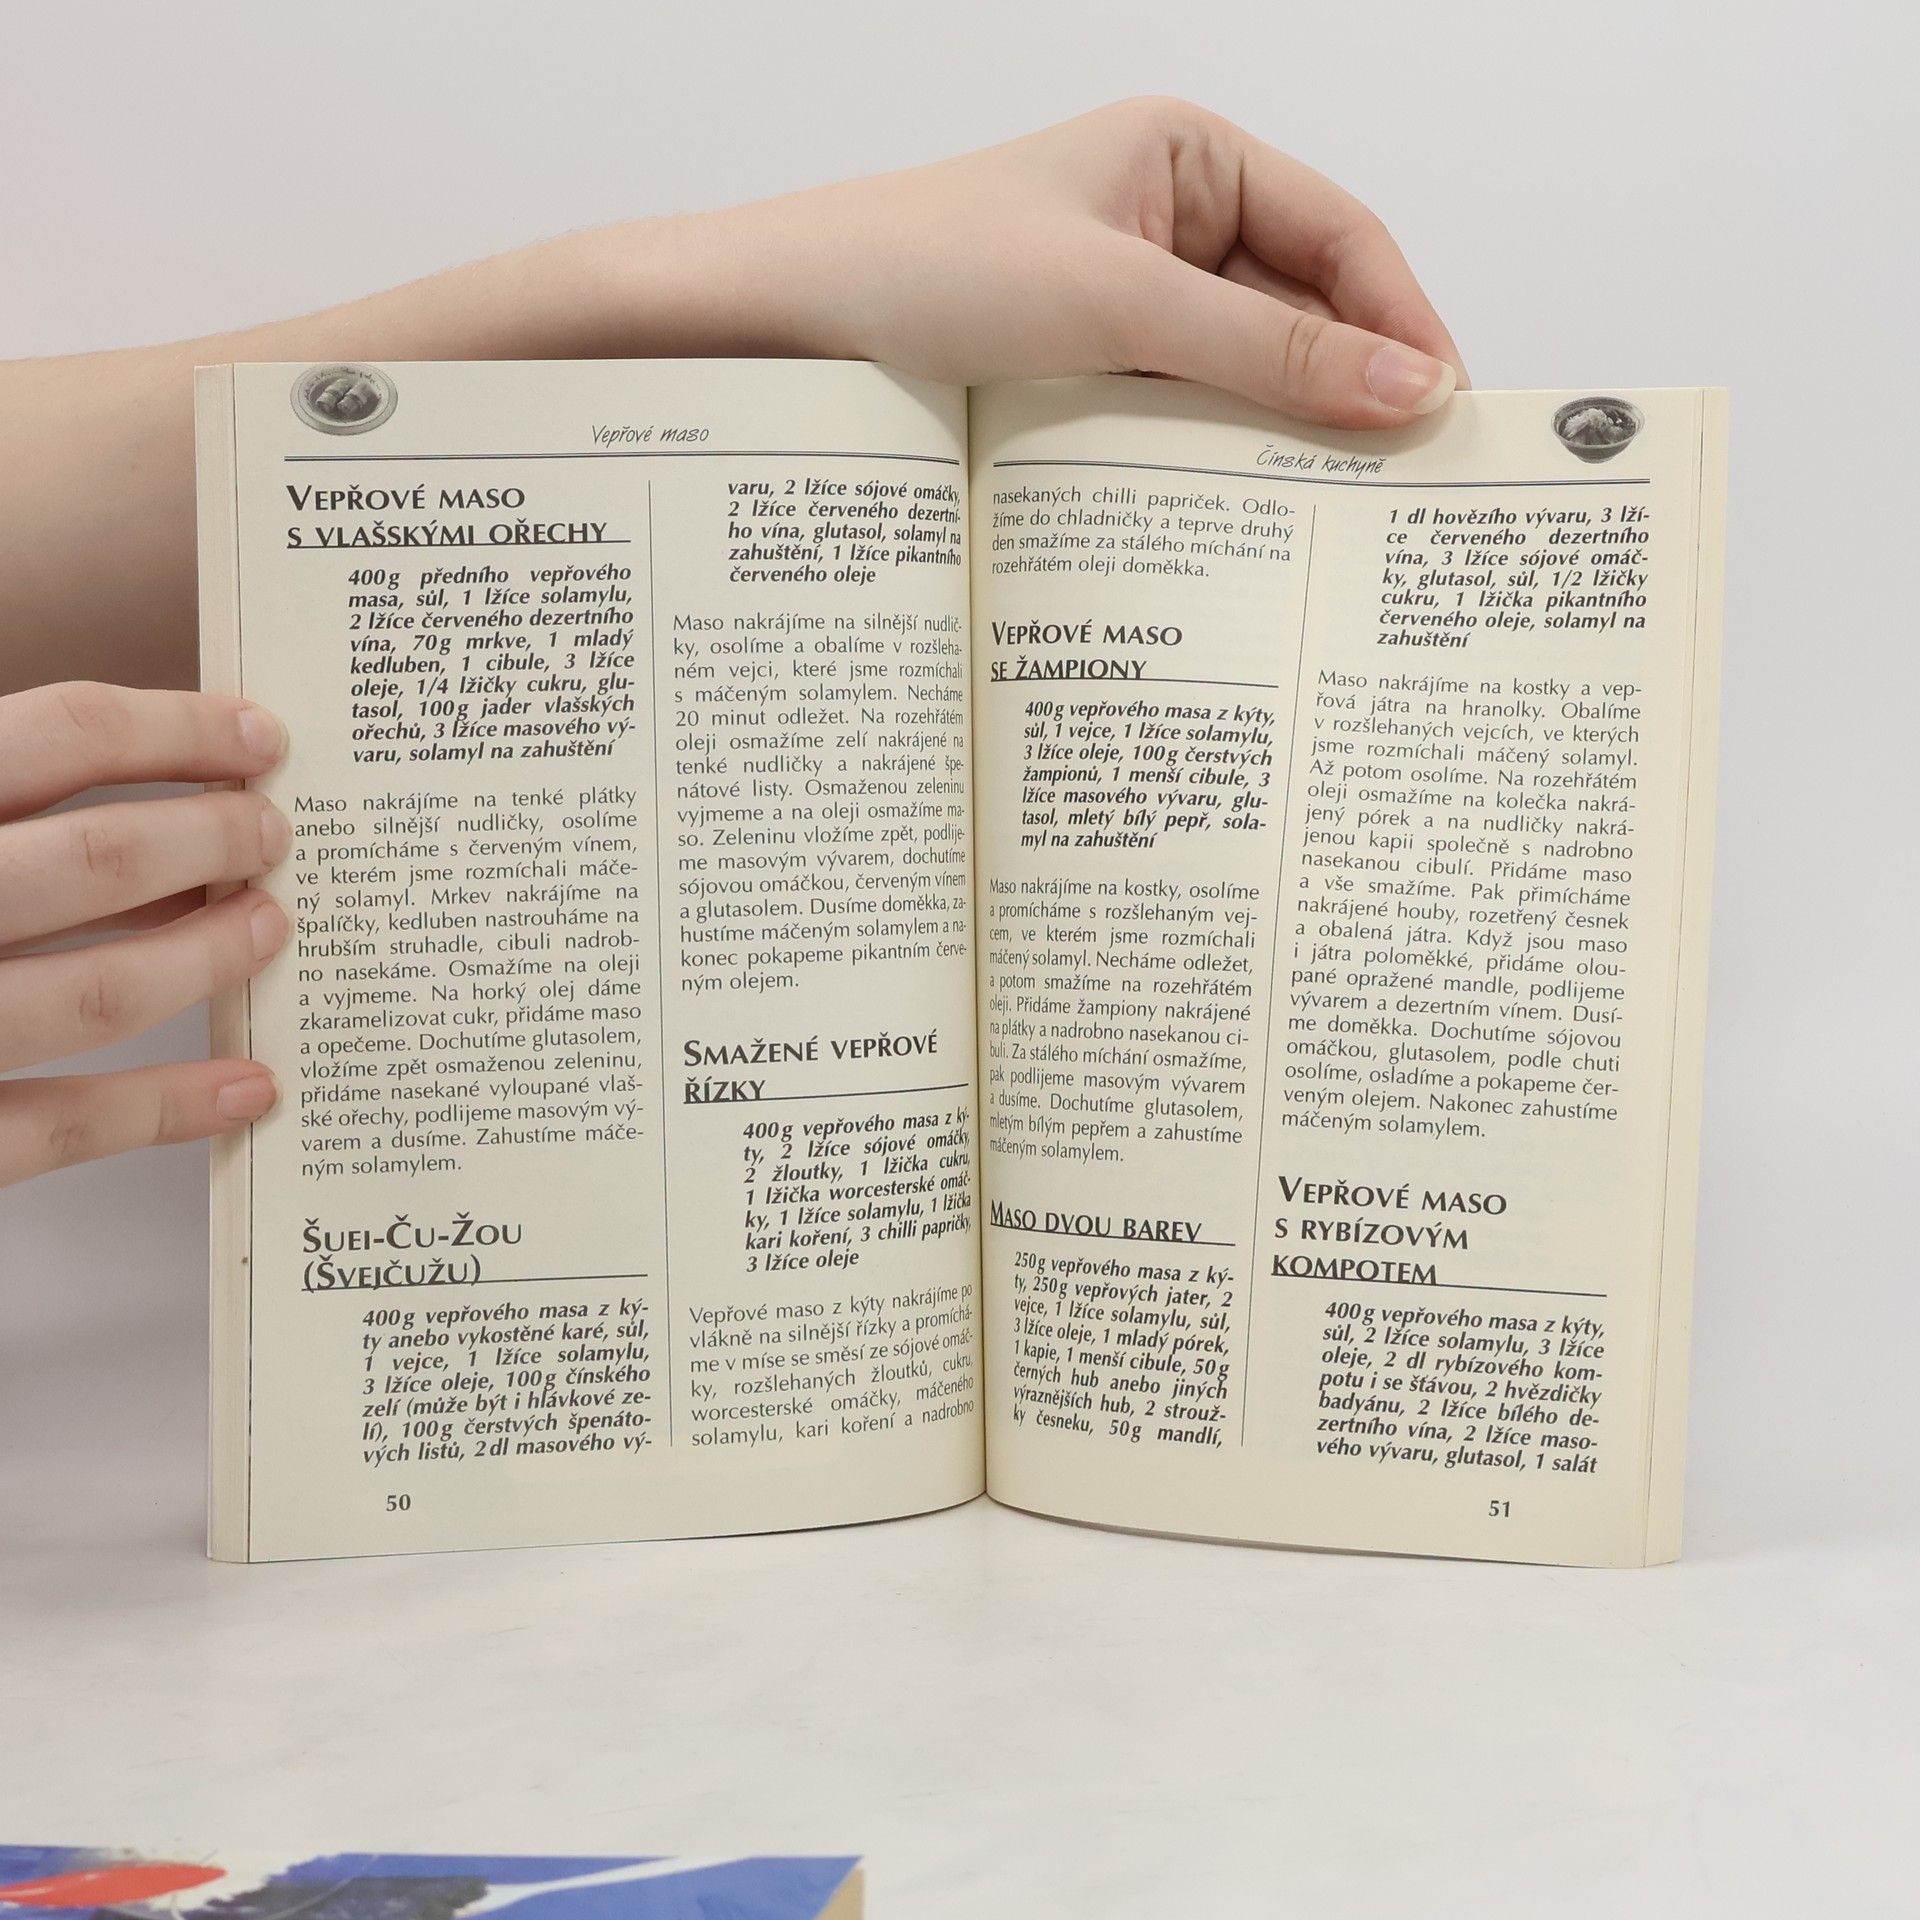 Vepřové maso
VEPŘOVÉ MASO
S VLAŠSKÝMI OŘECHY
400g předního vepřového
masa, sůl, 1 lžíce solamylu,
2 lžíce červeného dezertního
vína, 70g mrkve, 1 mladý
kedluben, 1 cibule, 3 lžíce
oleje, 1/4 lžičky cukru, glu-
tasol, 100g jader vlašských
ořechů, 3 lžíce masového vý-
varu, solamyl na zahuštění
Maso nakrájíme na tenké plátky
anebo silnější nudličky, osolíme
a promícháme s červeným vínem,
ve kterém jsme rozmíchali máče-
ný solamyl. Mrkev nakrájíme na
špalíčky, kedluben nastrouháme na
hrubším struhadle, cibuli nadrob-
no nasekáme. Osmažíme na oleji
a vyjmeme. Na horký olej dáme
zkaramelizovat cukr, přidáme maso
a opečeme. Dochutíme glutasolem,
vložíme zpět osmaženou zeleninu,
přidáme nasekané vyloupané vlaš-
ské ořechy, podlijeme masovým vý-
varem a dusíme. Zahustíme máče-
ným solamylem.
ŠUEI-ČU-ŽOU
(ŠVEJČUŽU)
400g vepřového masa z ký-
ty anebo vykostěné karé, sůl,
1 vejce, 1 lžíce solamylu,
3 lžíce oleje, 100g čínského
zelí (může být i hlávkové ze-
lí), 100g čerstvých špenáto-
vých listů, 2dl masového vý-
50
varu, 2 lžíce sójové omáčky,
2 lžíce červeného dezertní-
ho vína, glutasol, solamyl na
zahuštění, 1 lžíce pikantního
červeného oleje
Maso nakrájíme na silnější nudlič-
ky, osolíme a obalíme v rozšleha-
ném vejci, které jsme rozmíchali
s máčeným solamylem. Necháme
20 minut odležet. Na rozehřátém
oleji osmažíme zelí nakrájené na
tenké nudličky a nakrájené špe-
nátové listy. Osmaženou zeleninu
vyjmeme a na oleji osmažíme ma-
so. Zeleninu vložíme zpět, podlije-
me masovým vývarem, dochutíme
sójovou omáčkou, červeným vínem
a glutasolem. Dusíme doměkka, za-
hustíme máčeným solamylem a na-
konec pokapeme pikantním červe-
ným olejem.
SMAŽENÉ VEPŘOVÉ
ŘÍZKY
400g vepřového masa z ký-
ty, 2 lžíce sójové omáčky,
2 žloutky, 1 lžička cukru,
1 lžička worcesterské omáč-
ky, 1 lžíce solamylu, 1 lžička
kari koření, 3 chilli papričky,
3 lžíce oleje
Vepřové maso z kýty nakrájíme po
vlákně na silnější řízky a promíchá-
me v míse se směsí ze sójové omáč-
ky, rozšlehaných žloutků, cukru,
worcesterské omáčky, máčeného
solamylu, kari koření a nadrobno
Čínská kuchyně
nasekaných chilli papriček. Odlo-
žíme do chladničky a teprve druhý
den smažíme za stálého míchání na
rozehřátém oleji doměkka.
VEPŘOVÉ MASO
SE ŽAMPIONY
400g vepřového masa z kýty,
sůl, 1 vejce, 1 lžíce solamylu,
3 lžíce oleje, 100g čerstvých
žampionů, 1 menší cibule, 3
lžíce masového vývaru, glu-
tasol, mletý bílý pepř, sola-
myl na zahuštění
Maso nakrájíme na kostky, osolíme
a promícháme s rozšlehaným vej-
cem, ve kterém jsme rozmíchali
máčený solamyl. Necháme odležet,
a potom smažíme na rozehřátém
oleji. Přidáme žampiony nakrájené
na plátky a nadrobno nasekanou ci-
buli. Za stálého míchání osmažíme,
pak podlijeme masovým vývarem
a dusíme. Dochutíme glutasolem,
mletým bílým pepřem a zahustíme
máčeným solamylem.
MASO DVOU BAREV
250g vepřového masa z ký-
ty, 250g vepřových jater, 2
vejce, 1 lžíce solamylu, sůl,
3 lžíce oleje, 1 mladý pórek,
1 kapie, 1 menší cibule, 50g
černých hub anebo jiných
výraznějších hub, 2 strouž-
ky česneku, 50g mandlí,
1 dl hovězího vývaru, 3 lží-
ce červeného dezertního
vína, 3 lžíce sójové omáč-
ky, glutasol, sůl, 1/2 lžičky
cukru, 1 lžička pikantního
červeného oleje, solamyl na
zahuštění
Maso nakrájíme na kostky a vep-
řová játra na hranolky. Obalíme
v rozšlehaných vejcích, ve kterých
jsme rozmíchali máčený solamyl.
Až potom osolíme. Na rozehřátém
oleji osmažíme na kolečka nakrá-
jený pórek a na nudličky nakrá-
jenou kapii společně s nadrobno
nasekanou cibulí. Přidáme maso
a vše smažíme. Pak přimícháme
nakrájené houby, rozetřený česnek
a obalená játra. Když jsou maso
i játra poloměkké, přidáme olou-
pané opražené mandle, podlijeme
vývarem a dezertním vínem. Dusí-
me doměkka. Dochutíme sójovou
omáčkou, glutasolem, podle chuti
osolíme, osladíme a pokapeme čer-
veným olejem. Nakonec zahustíme
máčeným solamylem.
VEPŘOVÉ MASO
S RYBÍZOVÝM
KOMPOTEM
400g vepřového masa z kýty,
sůl, 2 lžíce solamylu, 3 lžíce
oleje, 2 dl rybízového kom-
potu i se šťávou, 2 hvězdičky
badyánu, 2 lžíce bílého de-
zertního vína, 2 lžíce maso-
vého vývaru, glutasol, 1 salát
51